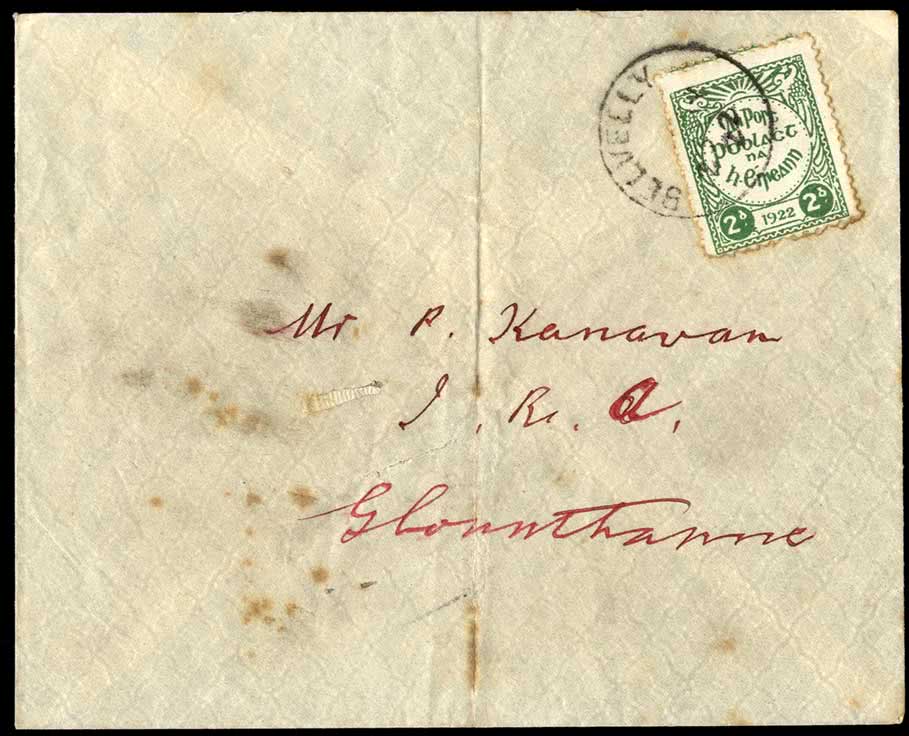 BELVELLY
22
An Post
poblact
na
h-Éireann
2d 1922 2d
Mr P. Kanavan
I. R. A.
Glounthanne